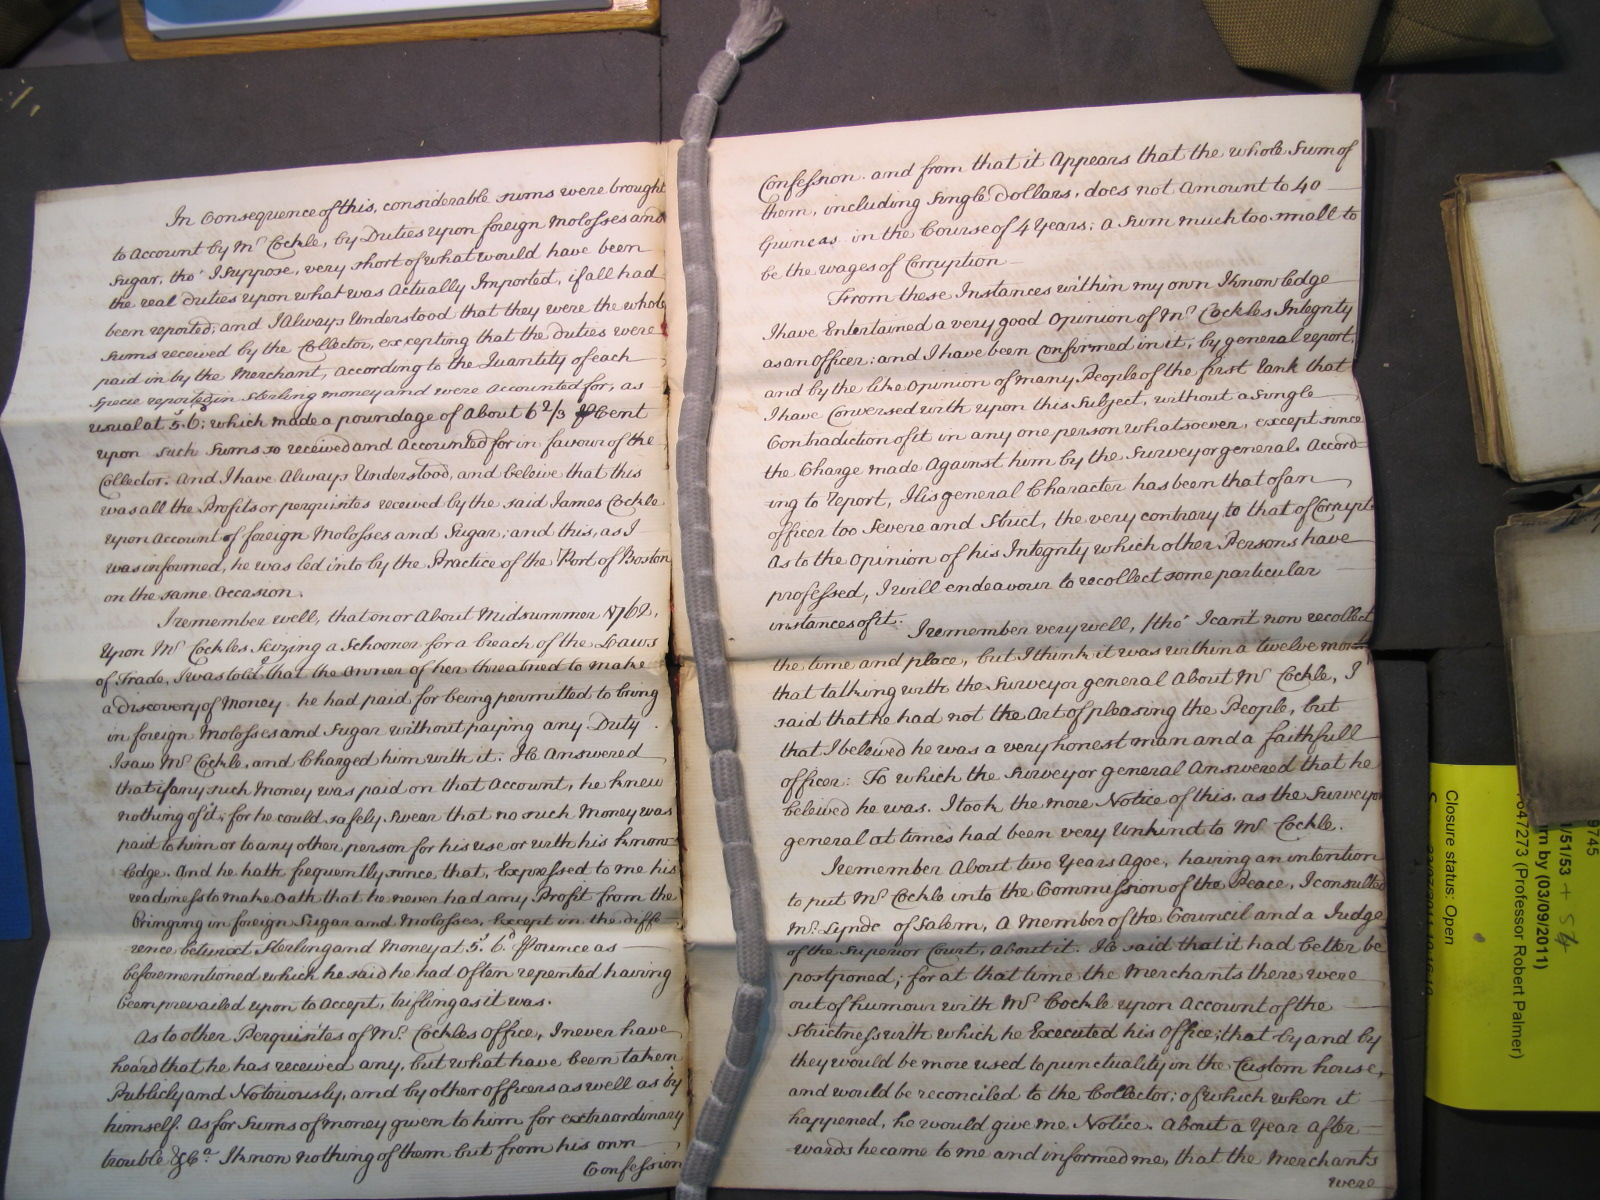 In Consequence of this, considerable sums were brought
to Account by Mr Cockle, by Duties upon foreign Molosses and
Sugar, tho' I Suppose, very short of what would have been
the real Duties upon what was Actually Imported, if all had
been reported; and I Always Understood that they were the whole
Sums received by the Collector, excepting that the duties were
paid in by the Merchant, according to the Quantity of each
Specie reported, in sterling money and were Accounted for, as
usual at 5.6; which made a poundage of About 6 2/3 P Cent
upon such Sums so received and Accounted for in favour of the
Collector. And I have Always Understood, and beleive that this
was all the Profits or perquisites received by the said James Cockle
upon Account of foreign Molosses and Sugar; and this, as I
was informed, he was led into by the Practice of the Port of Boston
on the same Occasion.
I remember well, that on or About Midsummer 1762,
Upon Mr Cockles Seizing a Schooner for a breach of the Laws
of Trade, I was told that the Owner of her threatned to make
a discovery of Money he had paid for being permitted to bring
in foreign Molosses and Sugar without paying any Duty.
I saw Mr Cockle, and Charged him with it. He Answered
that if any such Money was paid on that Account, he knew
nothing of it; for he could safely Swear that no such Money was
paid to him or to any other person for his use or with his know=
ledge. And he hath frequently since that, Expressed to me his
readiness to make Oath that he never had any Profit from the
Bringing in foreign Sugar and Molosses, Except in the diffe=
rence betwixt Sterling and Money at 5s. 6d P ounce as
beforementioned which he said he had Often repented having
been prevailed upon to Accept, trifling as it was.
As to other Perquisites of Mr. Cockles Office, I never have
heard that he has received any, but what have been taken
Publicly and Notoriously, and by other officers as well as by
himself. As for Sums of money given to him for extraordinary
trouble &ca. I know nothing of them but from his own
Confession
Confession. and from that it Appears that the whole Sum of
them, including Single Dollars, does not Amount to 40
Guineas in the Course of 4 Years; a Sum much too small to
be the wages of Corruption
From these Instances within my own Knowledge
I have Entertained a very good Opinion of Mr Cockles Integrity
as an Officer: and I have been Confirmed in it, by general report,
and by the like Opinion of many People of the first Rank that
I have Conversed with upon this Subject, without a Single
Contradiction of it in any one person whatsoever, except since
the Charge made Against him by the Surveyor general. Accord=
ing to Report, His general Character has been that of an
officer too Severe and Strict, the very contrary to that of Corrupt.
As to the Opinion of his Integrity which other Persons have
professed, I will endeavour to recollect some particular
instances of it.
I remember very well, /tho' I can't now recollect
the time and place, but I think it was within a twelve month
that talking with the Surveyor general About Mr Cockle, I
said that he had not the Art of pleasing the People, but
that I beleived he was a very honest man and a faithfull
officer: To which the Surveyor general Answered that he
beleived he was. I took the more Notice of this, as the Surveyor
general at times had been very Unkind to Mr Cockle.
I remember About two Years Agoe, having an intention
to put Mr Cockle into the Commission of the Peace, I consulted
Mr. Lynde of Salem, a Member of the Council and a Judge
of the Superior Court, about it. He said that it had better be
postponed; for at that time the Merchants there were
out of humour with Mr Cockle upon Account of the
Strictness with which he Executed his Office; that by and by
they would be more used to punctuality in the Custom house,
and would be reconciled to the Collector; of which when it
happened, he would give me Notice. About a Year After=
wards he came to me and informed me, that the Merchants
were
Closure status: Open
(Professor Robert Palmer)
by (03/09/2011)
1/51/53 + 54
9745